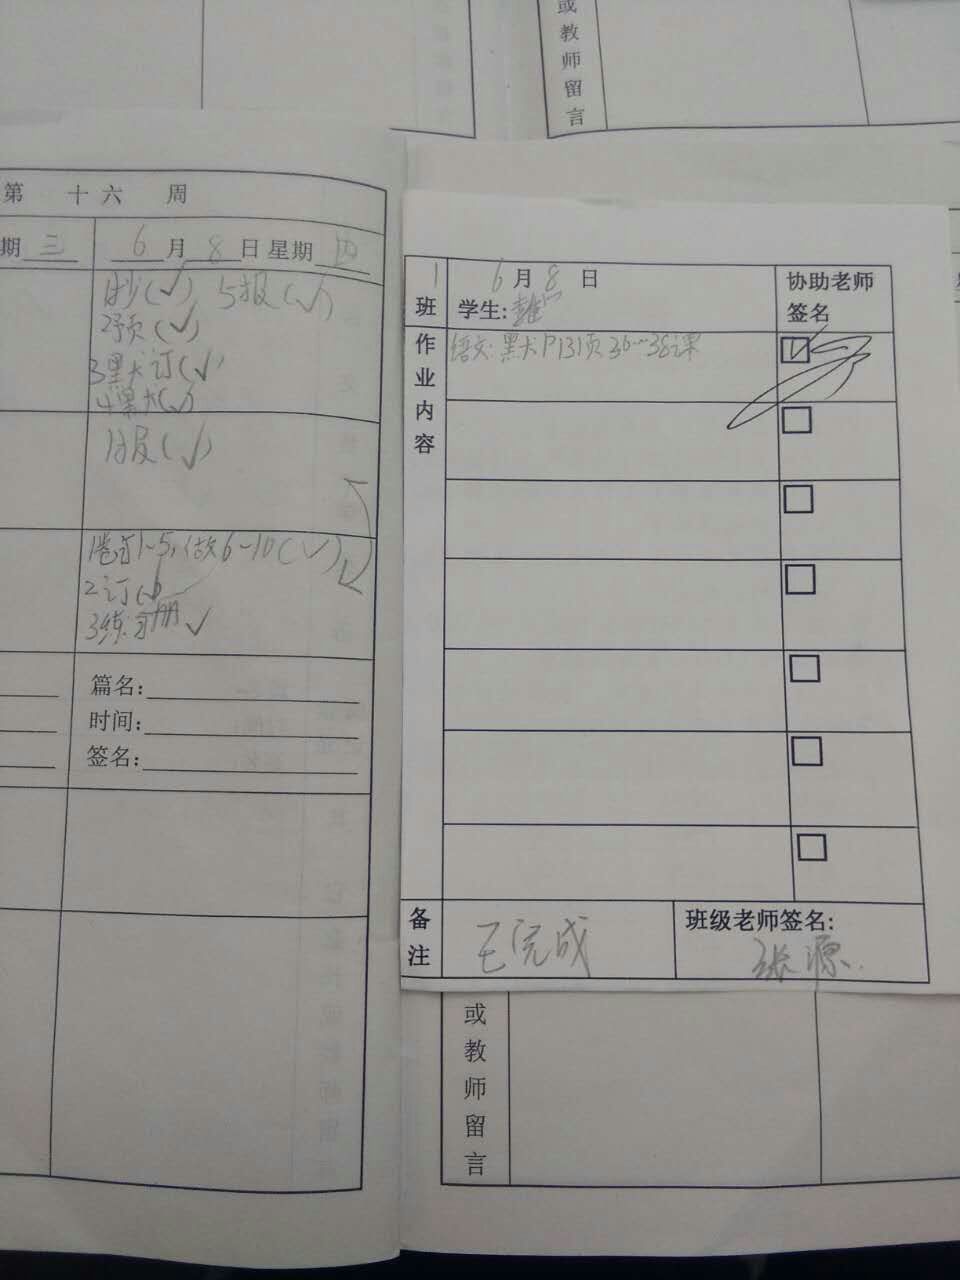 或
教
师
留
言
第 十六 周
期 三
6月8日星期四
1抄(√) 5报(√)
2预(√)
3黑大订(√)
4课大(√)
1报(√)
1卷订1~5,做6~10(√)
2订(√)
3练习册√
篇名:
时间:
签名:
1班
6月8日
学生:
协助老师
签名
作业内容
语文:黑大P131页36~38课
备注
已完成
班级老师签名:
张源
或
教
师
留
言